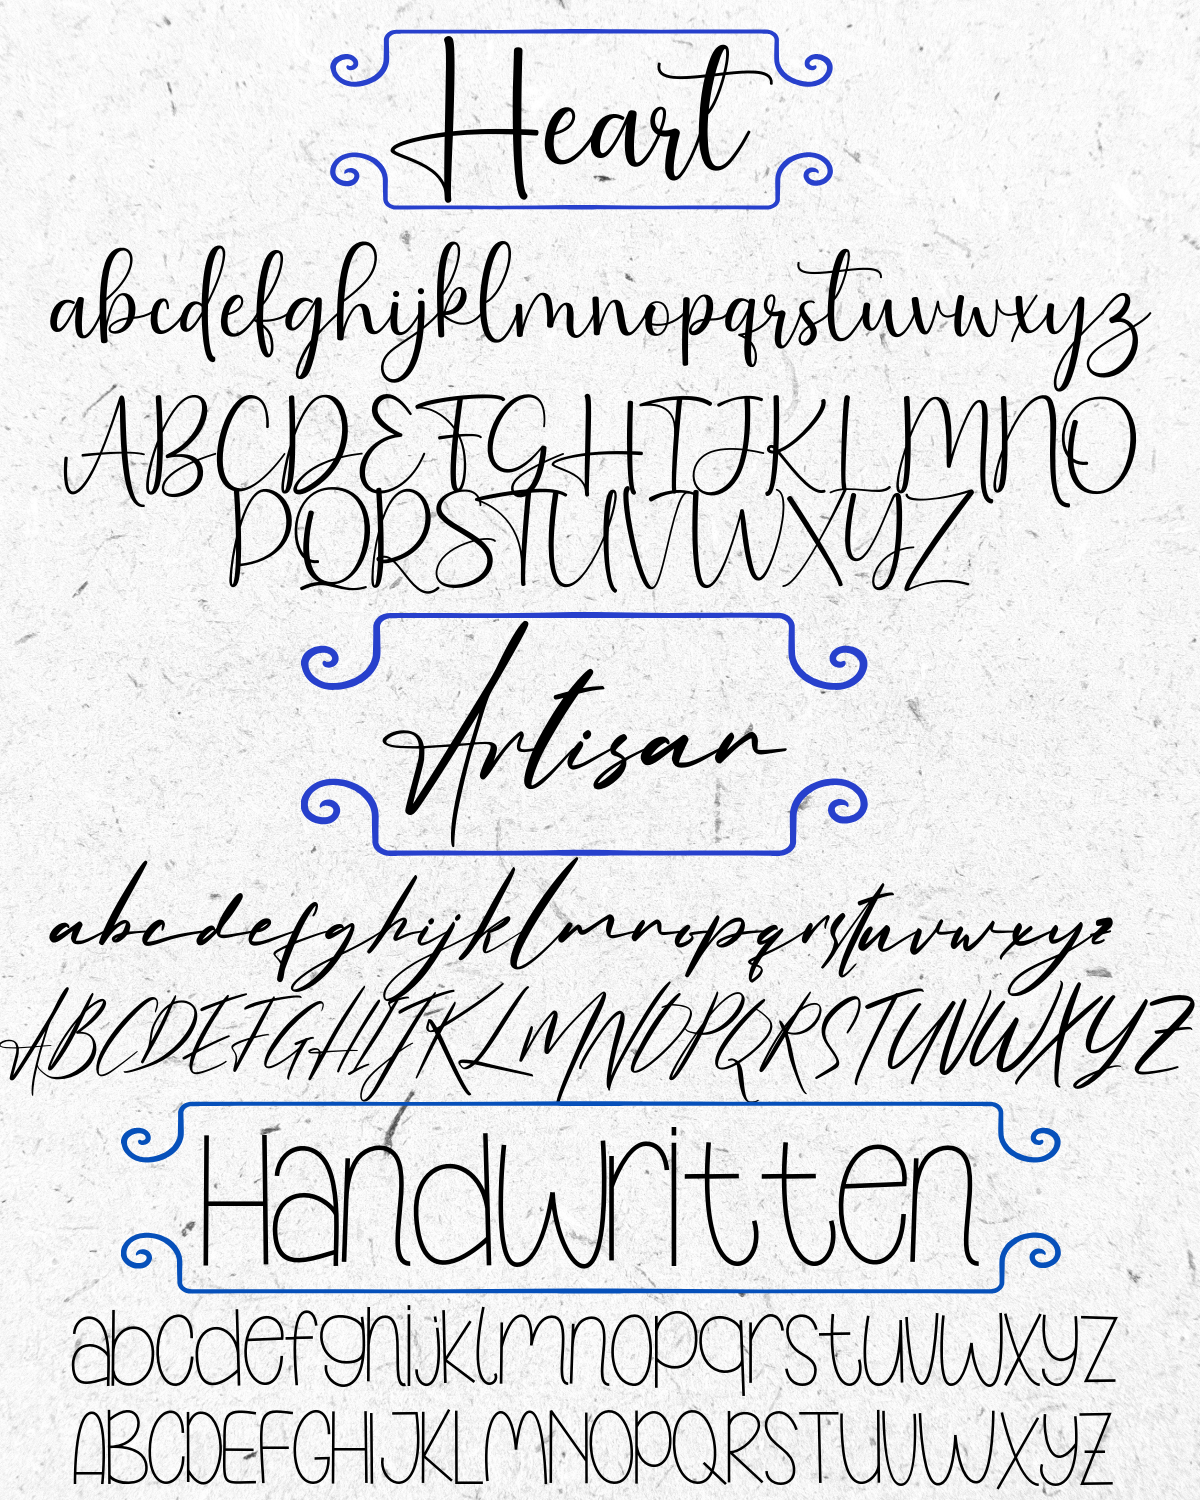 Heart
abcdefghijklmnopqrstuvwxyz
ABCDEFGHIJKLMNO
PQRSTUVWXYZ
Artisan
abcdefghijklmnopqrstuvwxyz
ABCDEFGHIJKLMNOPQRSTUVWXYZ
Handwritten
abcdefghijklmnopqrstuvwxyz
ABCDEFGHIJKLMNOPQRSTUVWXYZ